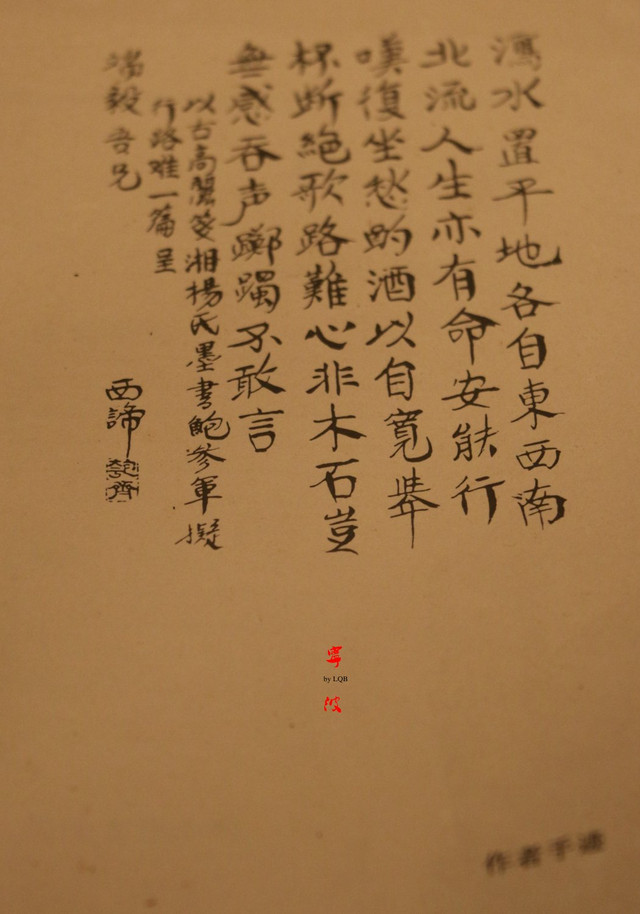 瀉水置平地各自東西南
北流人生亦有命安能行
嘆復坐愁酌酒以自寬舉
杯斷絕歌路難心非木石豈
無感吞声躑躅不敢言
以古高麗箋湘楊氏墨書鮑參軍擬
行路难一篇呈
端毅吾兄
西諦
寧波
by LQB
作者手迹